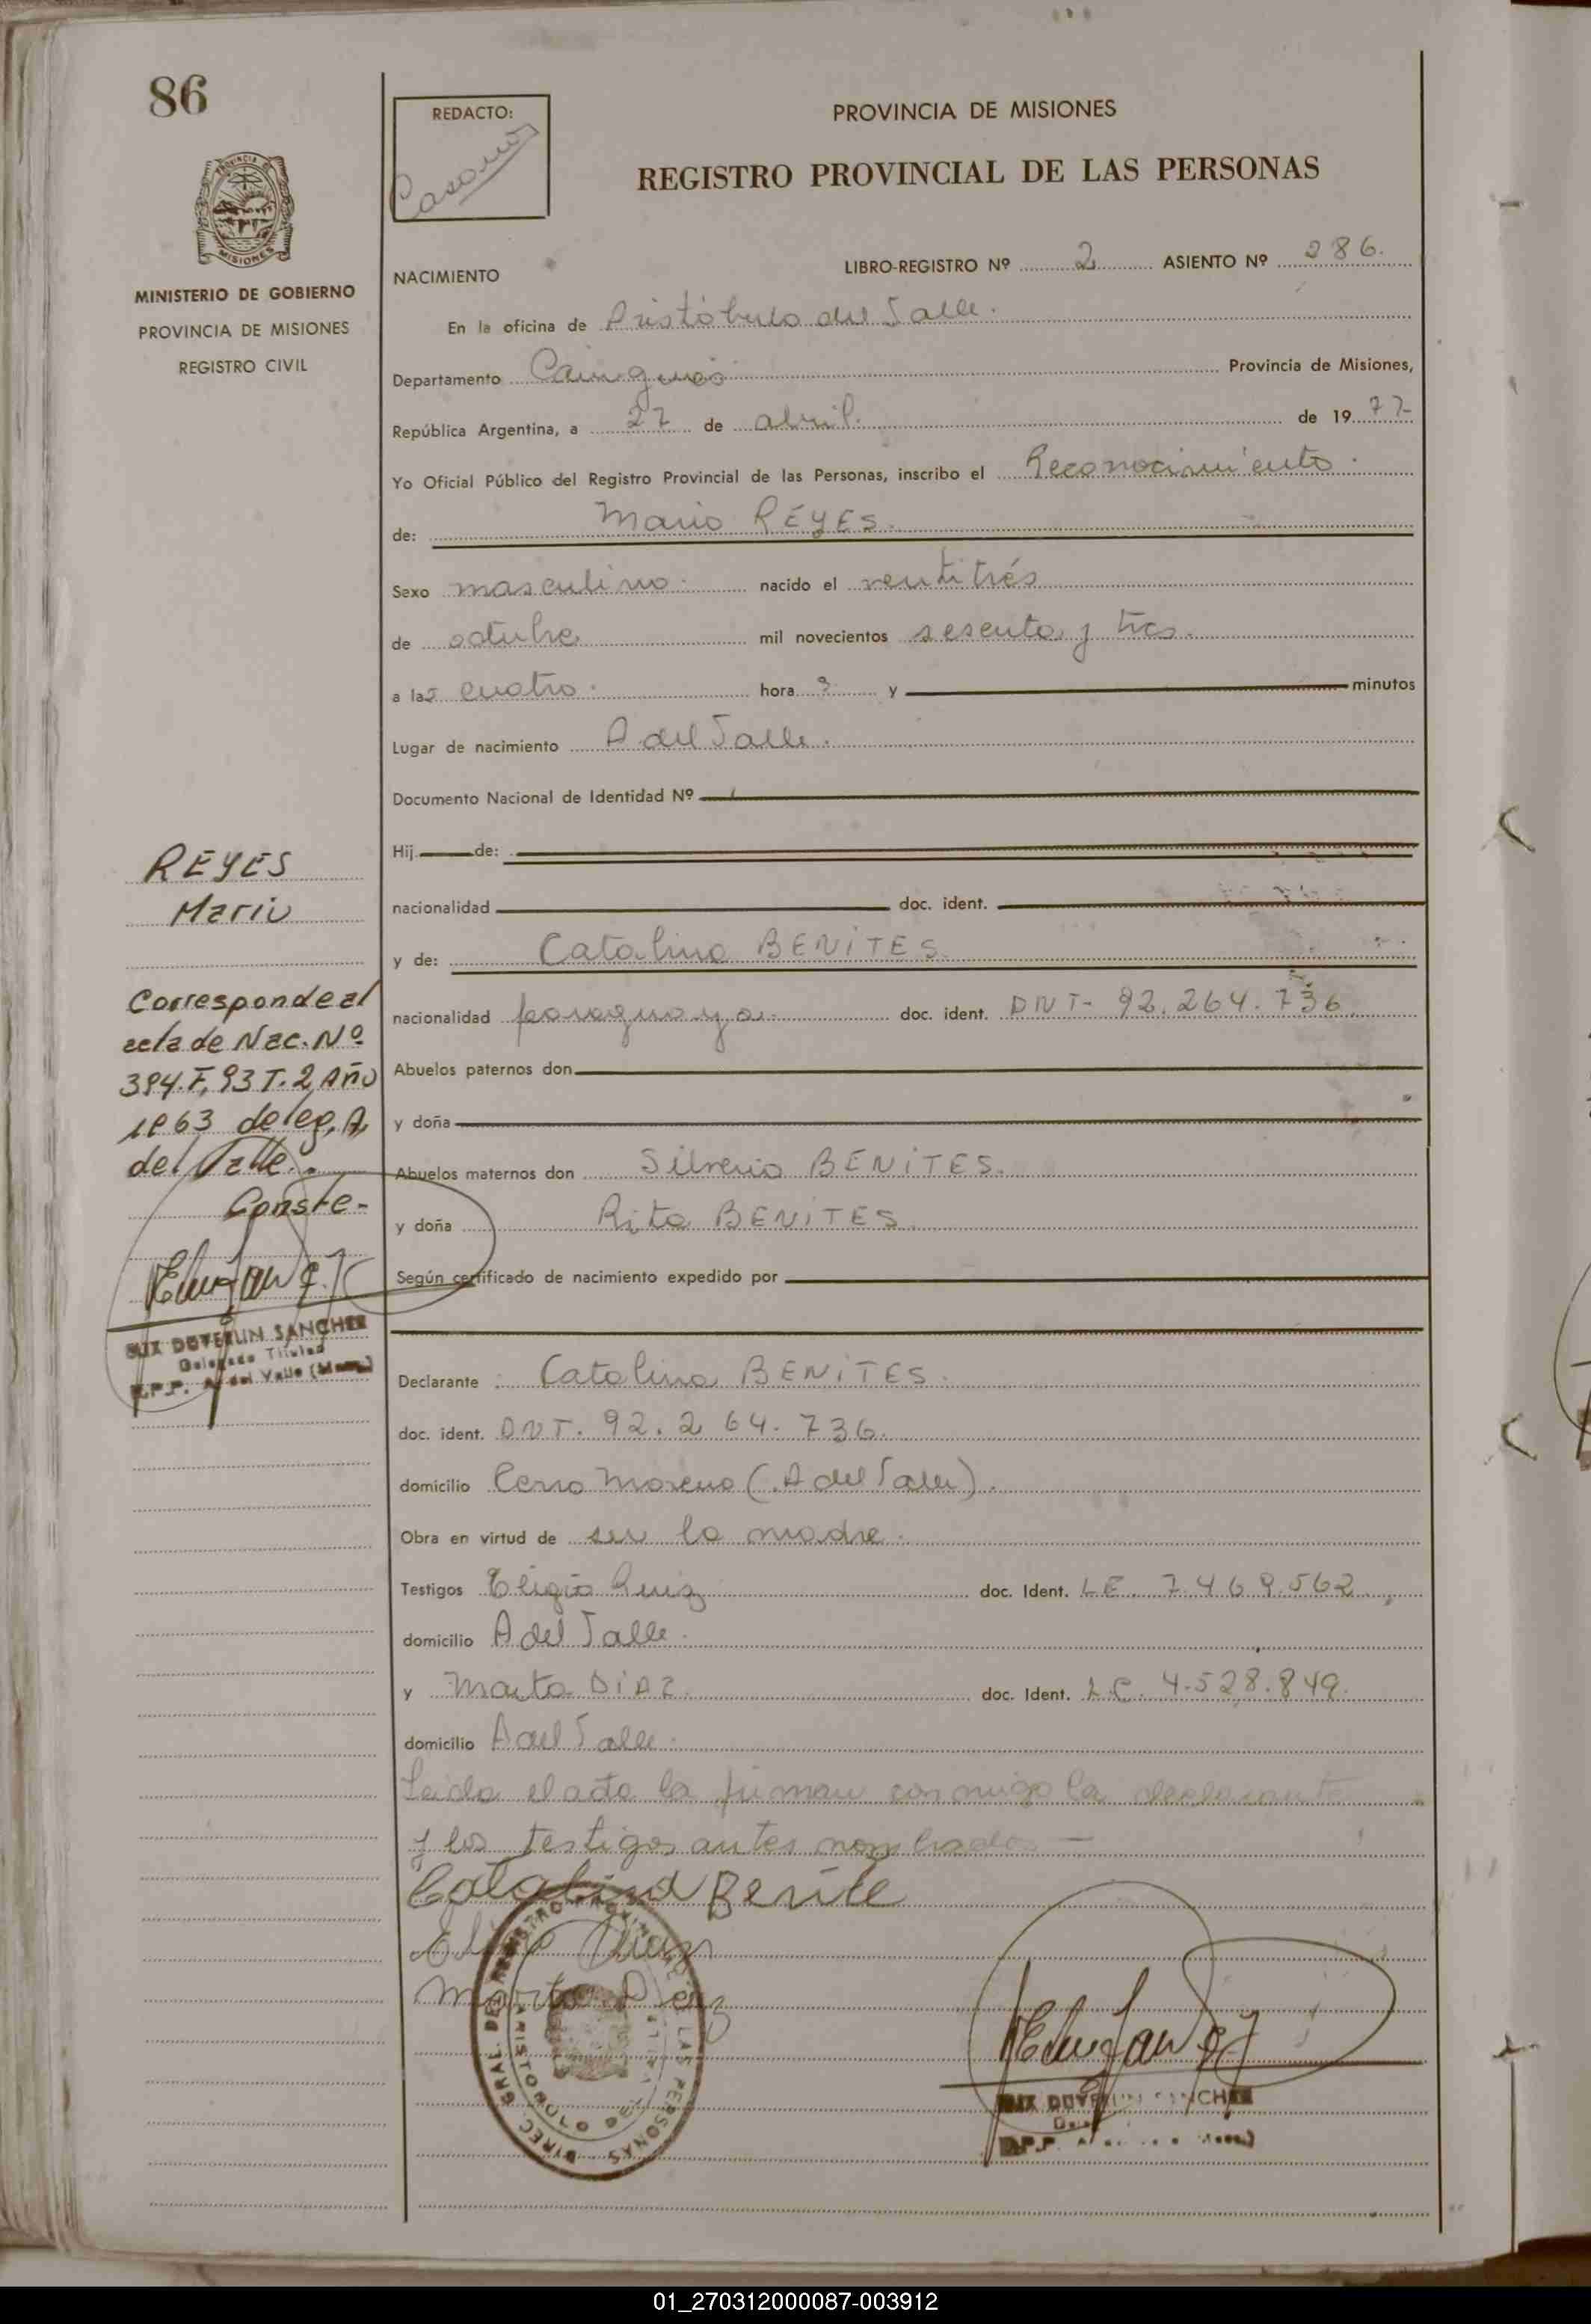 86
REDACTO:
PROVINCIA DE MISIONES
REGISTRO PROVINCIAL DE LAS PERSONAS
MISIONES
MINISTERIO DE GOBIERNO
PROVINCIA DE MISIONES
REGISTRO CIVIL
NACIMIENTO
LIBRO-REGISTRO Nº 2 ASIENTO Nº 286.
En la oficina de Aristóbulo del Valle.
Departamento Cainguás Provincia de Misiones,
República Argentina, a 27 de abril. de 1977-
Yo Oficial Público del Registro Provincial de las Personas, inscribo el Reconocimiento.
de: Mario REYES.
Sexo masculino. nacido el ventitrés
de octubre mil novecientos sesenta y tres.
a las cuatro. hora s y minutos
Lugar de nacimiento A del Valle.
Documento Nacional de Identidad Nº
Hij de:
nacionalidad doc. ident.
y de: Catalina BENITES.
nacionalidad paraguaya. doc. ident. DNT- 92.264.736
Abuelos paternos don
y doña
Abuelos maternos don Silverio BENITES.
y doña Rita BENITES.
Según certificado de nacimiento expedido por
REYES
Mario
Corresponde al
acta de Nac. Nº
394. F, 93 T. 2, Año
1963 deleg. A,
del Valle.
Conste-
DUVERLIN SANCHEZ
Delegado Titular
R.P.P. A. del Valle (Mnes.)
Declarante Catalina BENITES.
doc. ident. DNT. 92.264.736.
domicilio Cerro Moreno (A del Valle).
Obra en virtud de ser la madre.
Testigos Eligio Ruiz doc. Ident. LE. 7.469.562.
domicilio A del Valle.
y Marta DIAZ. doc. Ident. L.C. 4.528.849.
domicilio A del Valle.
Leida el acta la firman conmigo la declarante
y los testigos antes nombrados -
Catalina Benite
Marta Diaz
DIREC. GRAL. DEL REGISTRO PROVINCIAL DE LAS PERSONAS
ARISTOBULO DEL
DUVERLIN SANCHEZ
R.P.P.
01_270312000087-003912